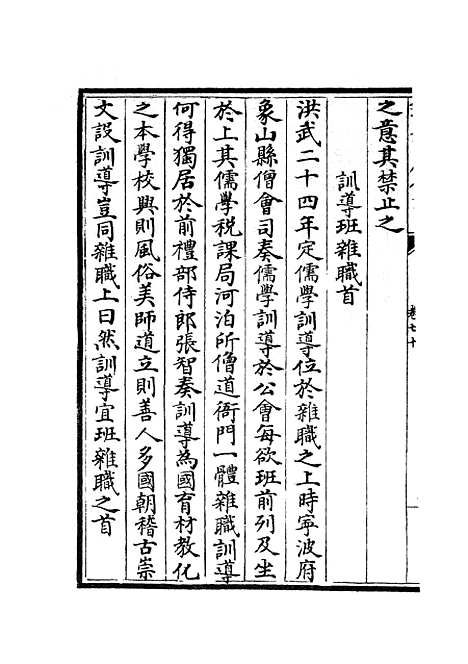 卷七十
之意其禁止之
訓導班雜職首
洪武二十四年定儒學訓導位於雜職之上時寧波府
象山縣僧會司奏儒學訓導於公會每欲班前列及坐
於上其儒學稅課局河泊所僧道衙門一體雜職訓導
何得獨居於前禮部侍郎張智奏訓導為國育材教化
之本學校興則風俗美師道立則善人多國朝稽古崇
文設訓導豈同雜職上曰然訓導宜班雜職之首